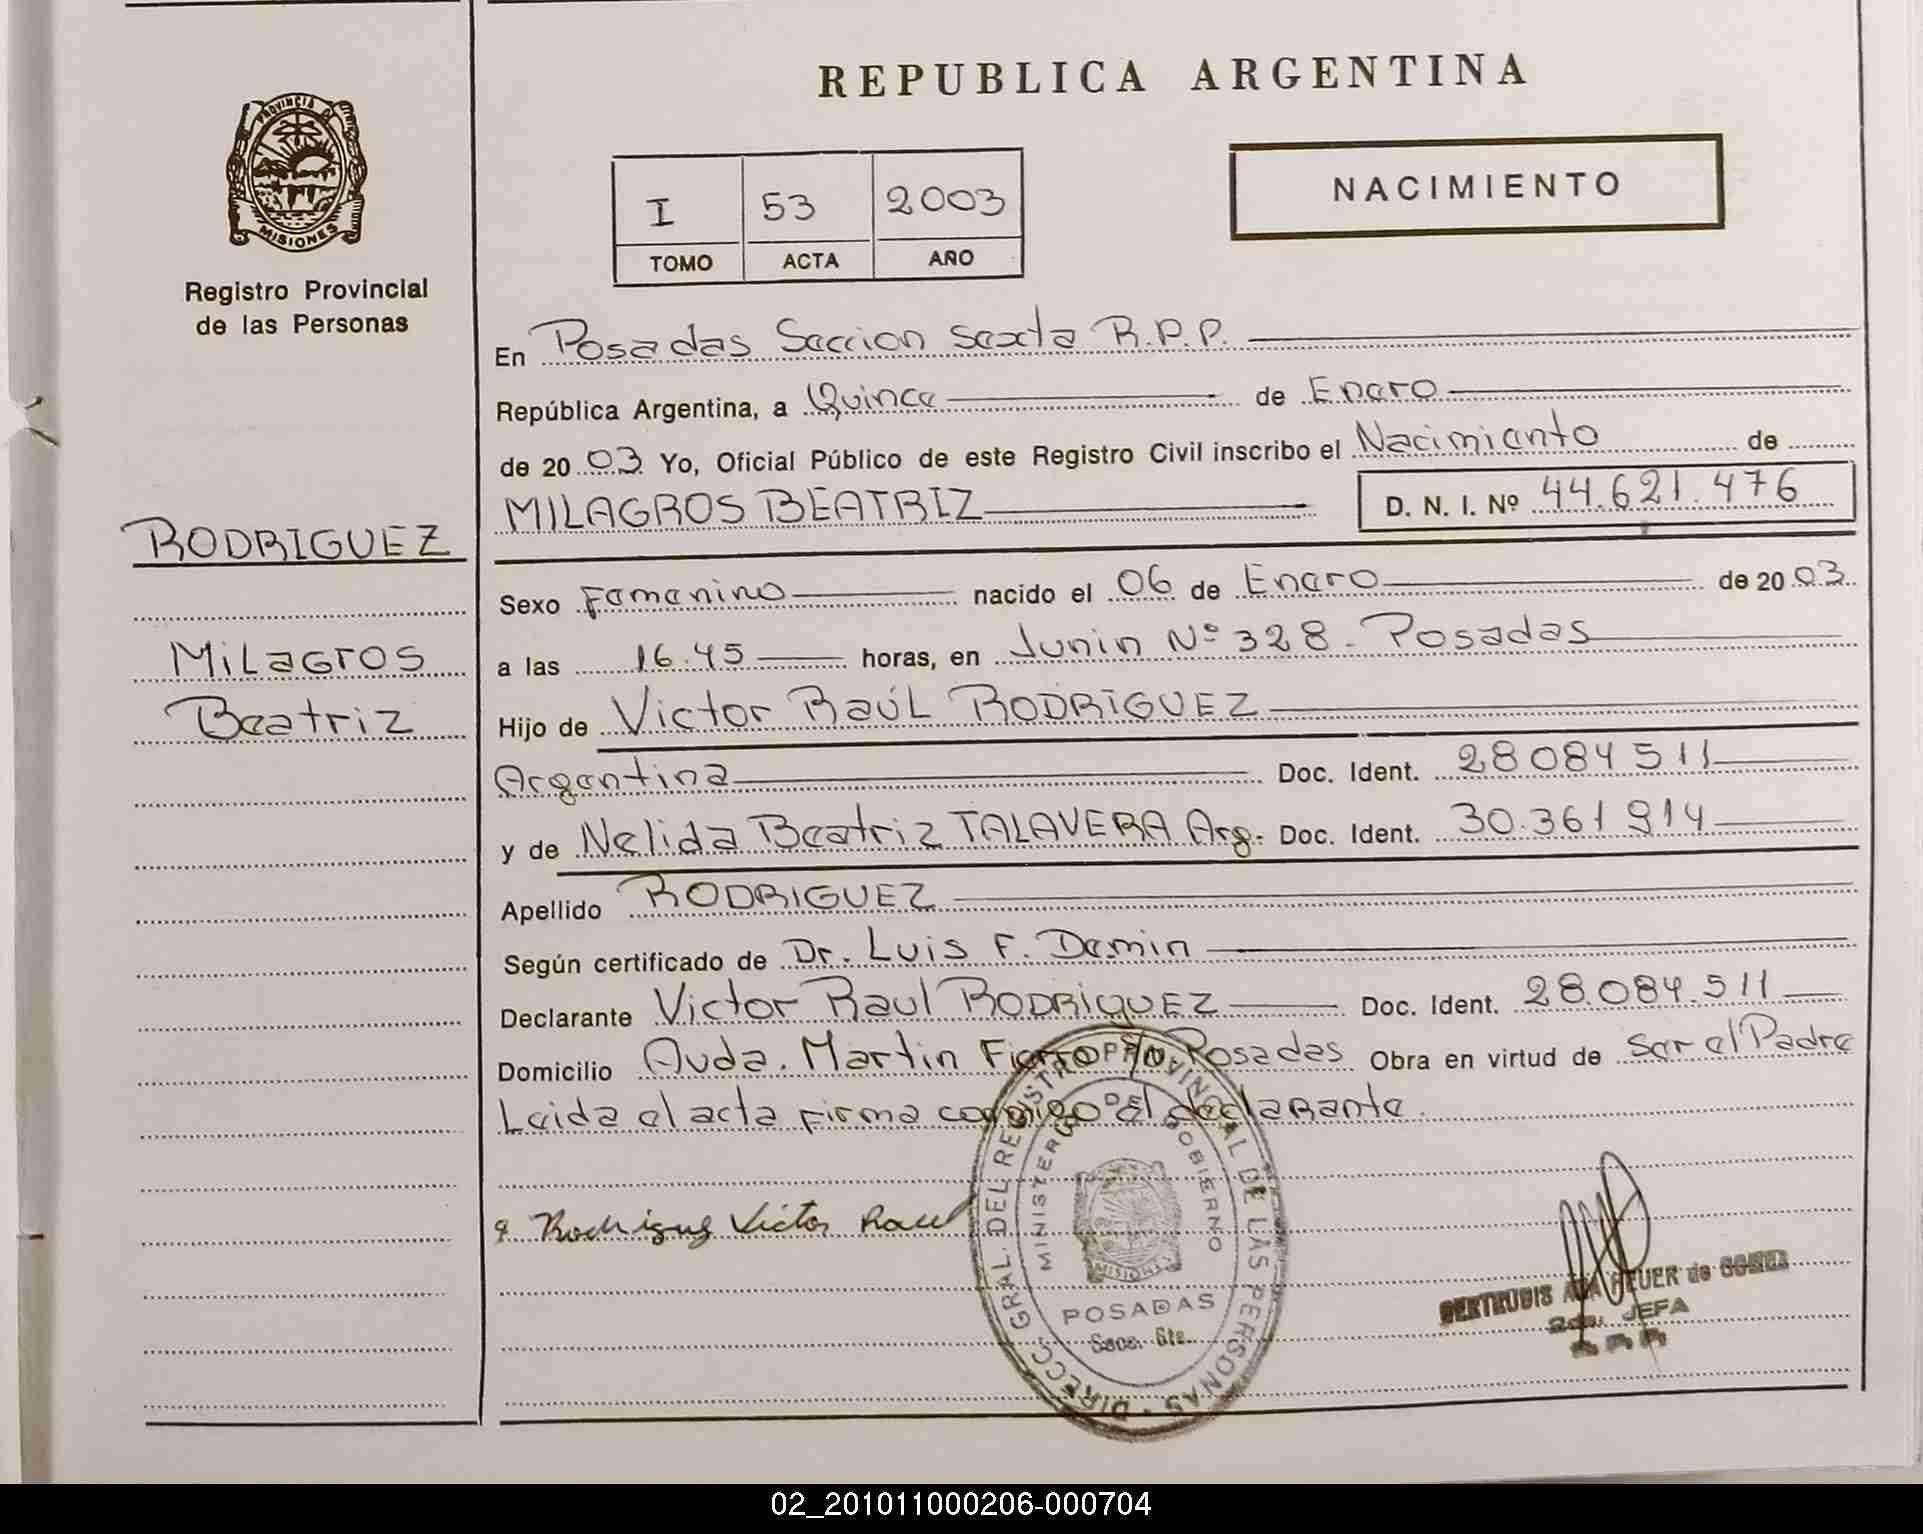 REPUBLICA ARGENTINA
PROVINCIA DE
MISIONES
Registro Provincial
de las Personas
I 53 2003
TOMO ACTA AÑO
NACIMIENTO
En Posadas Seccion Sexta R.P.P.
República Argentina, a Quince de Enero
de 20 03 Yo, Oficial Público de este Registro Civil inscribo el Nacimiento de
MILAGROS BEATRIZ D. N. I. Nº 44.621.476
RODRIGUEZ
Milagros
Beatriz
Sexo Femenino nacido el 06 de Enero de 20 03
a las 16.45 horas, en Junin Nº 328 - Posadas
Hijo de Victor Raúl RODRIGUEZ
Argentina Doc. Ident. 28 084 511
y de Nelida Beatriz TALAVERA Arg. Doc. Ident. 30.361 914
Apellido RODRIGUEZ
Según certificado de Dr. Luis F. Demin
Declarante Victor Raul RODRIGUEZ Doc. Ident. 28.084.511
Domicilio Avda. Martin Fierro Posadas Obra en virtud de Ser el Padre
Leida el acta firma conmigo el declarante.
Rodriguez Victor Raul
DIRECC. GRAL. DEL REGISTRO PROVINCIAL DE LAS PERSONAS
MINISTERIO DE GOBIERNO
MISIONES
POSADAS
Secc. 6ta.
GERTRUDIS HEUER de GOMEZ
JEFA
02_201011000206-000704